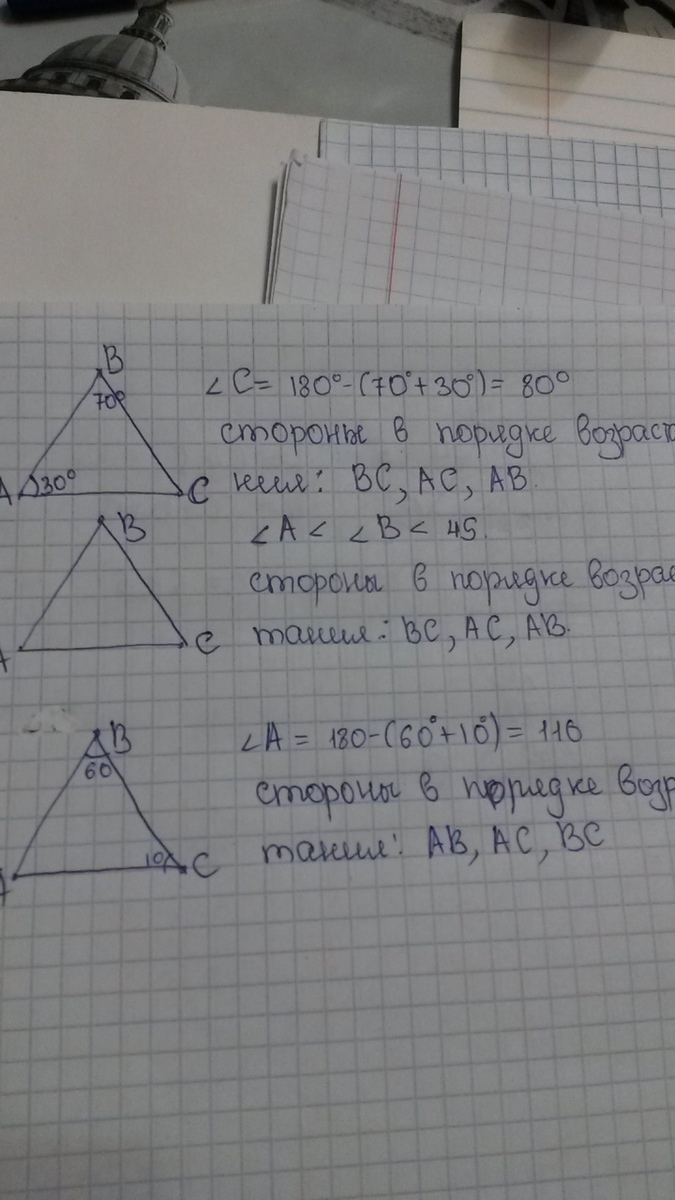 B
70°
A 30° C
∠C= 180°-(70°+30°)= 80°
стороны в порядке возраста
ния: BC, AC, AB.
B
A C
∠A < ∠B < 45.
стороны в порядке возрас
тания: BC, AC, AB.
B
60
A 10 C
∠A = 180-(60°+10°)= 110
стороны в порядке возр
тания: AB, AC, BC